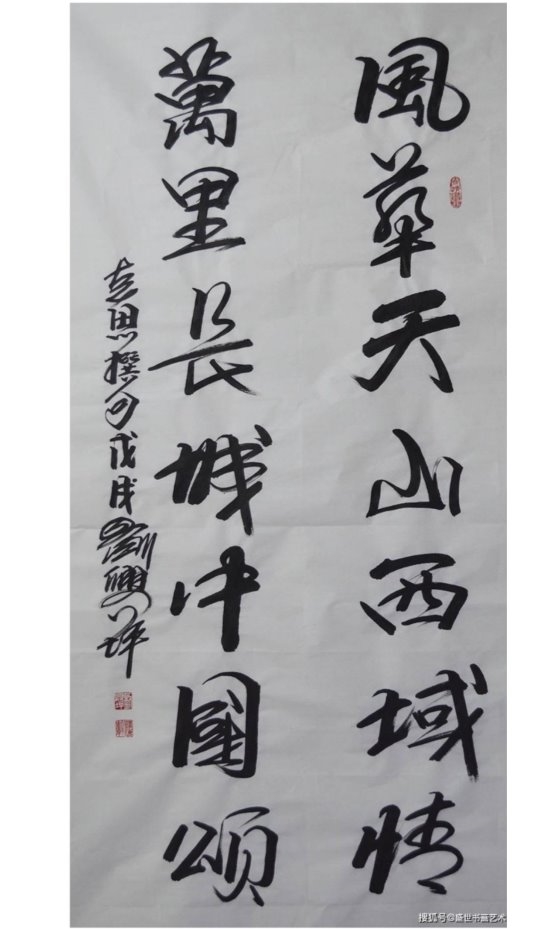 風華天山西域情
萬里長城中國頌
志思撰句戊戌劉興萍
搜狐号@盛世书画艺术